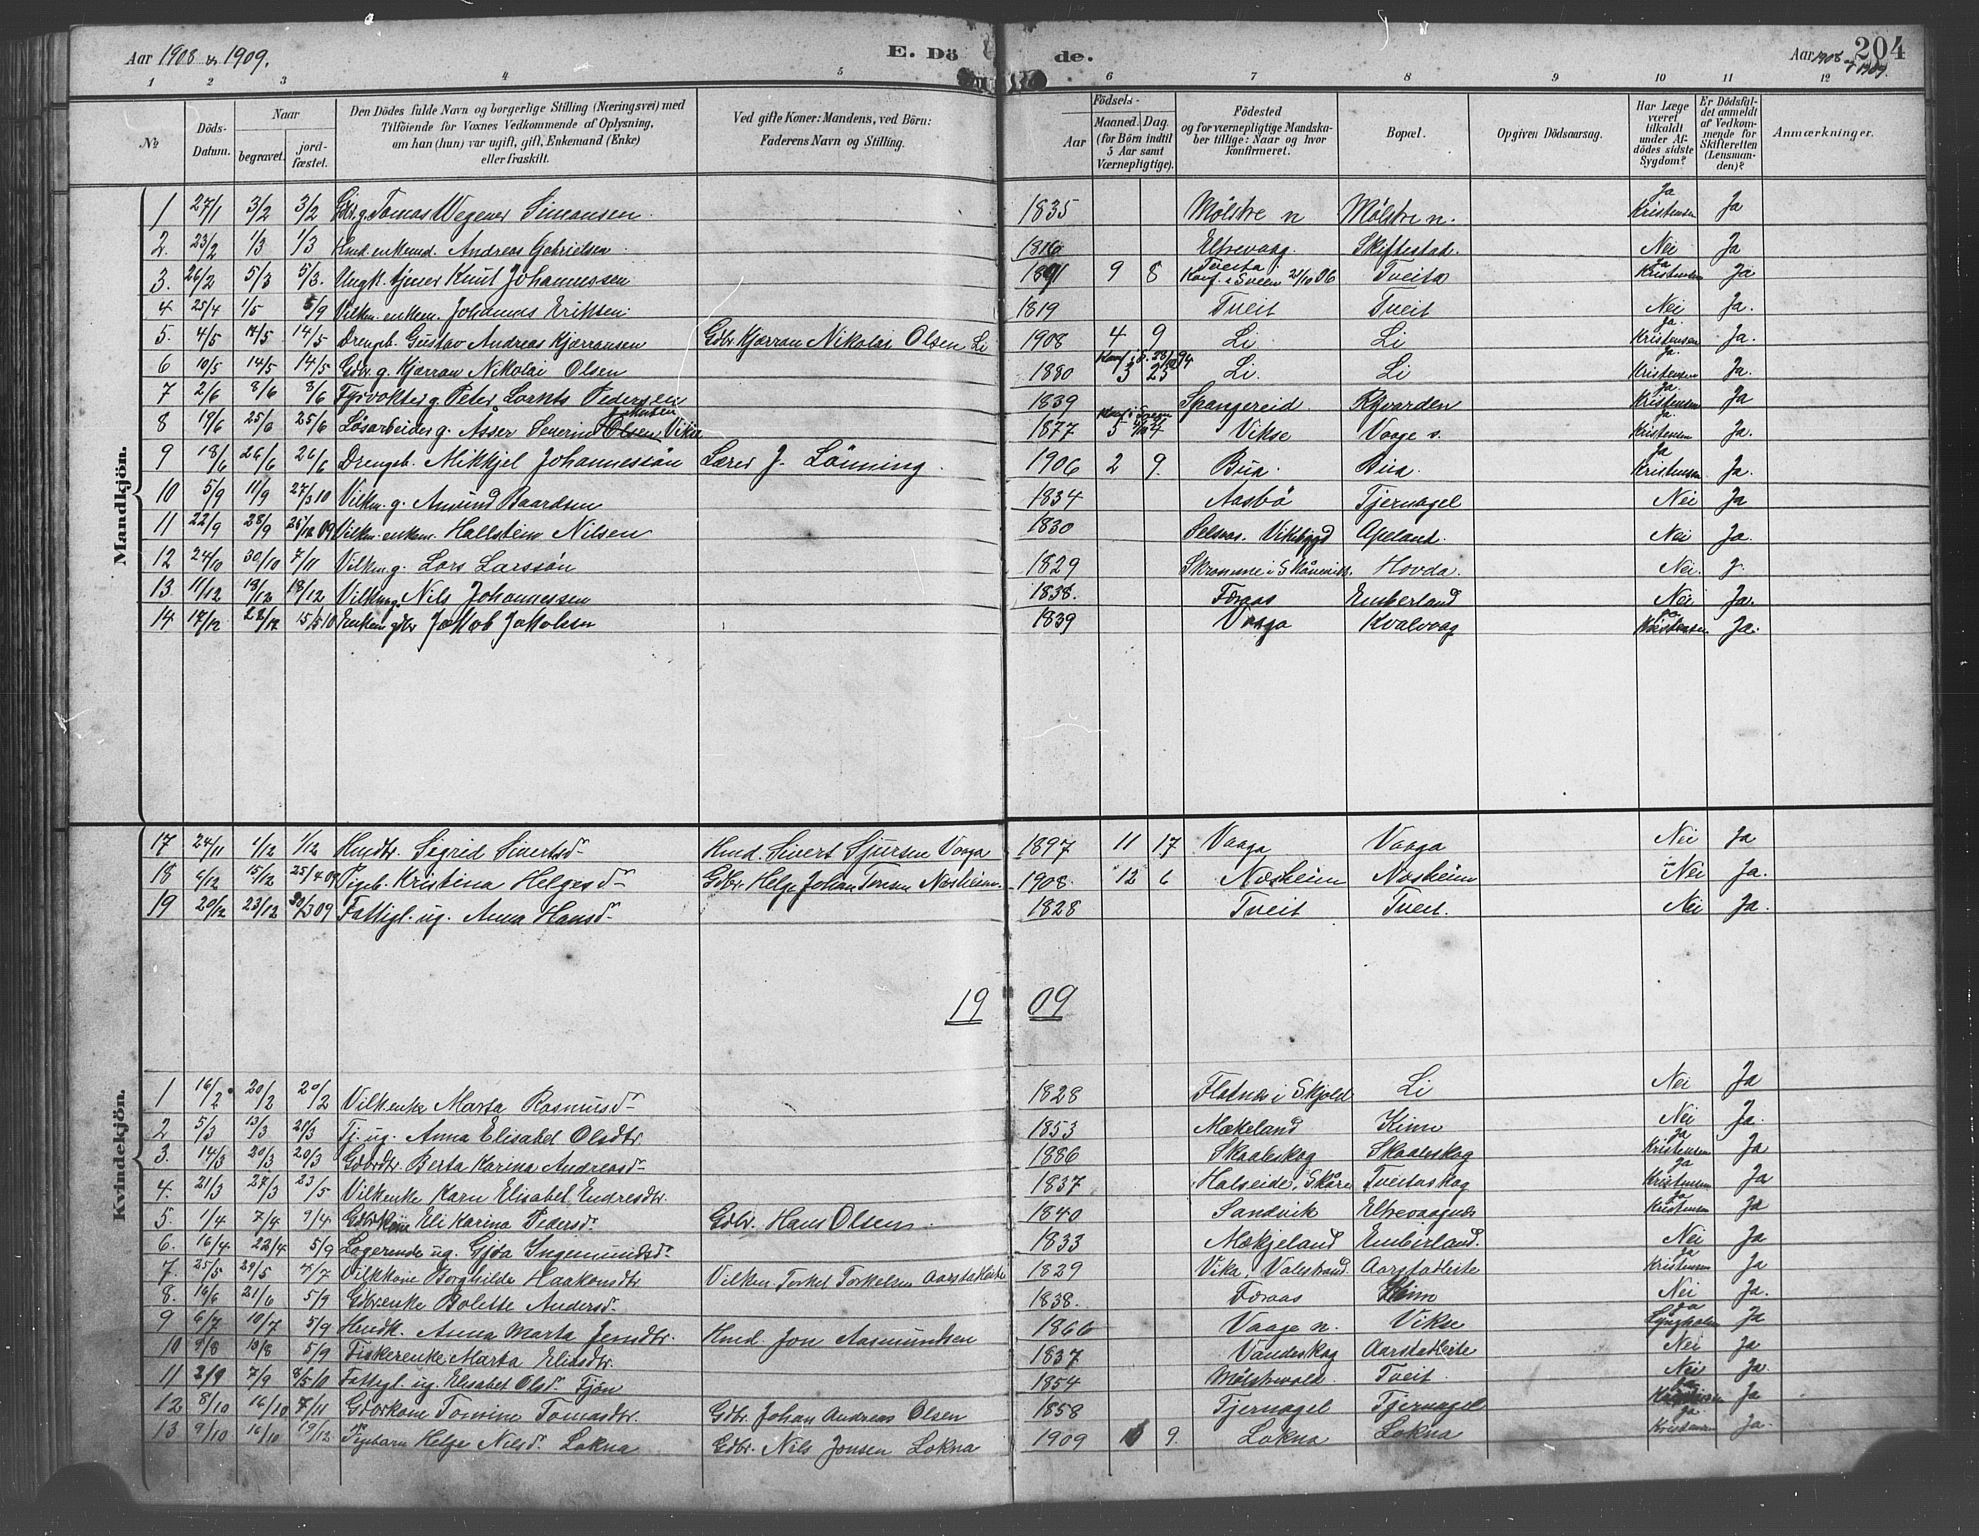 Aar 1908 & 1909. E. Dö de. Aar 1908 1909. 204
1 2 3 4 5 6 7 8 9 10 11 12
№ Döds-Datum. Naar begravet. jord-fæstet. Den Dödes fulde Navn og borgerlige Stilling (Næringsvei) med Tilföiende for Voxnes Vedkommende af Oplysning, om han (hun) var ugift, gift, Enkemand (Enke) eller fraskilt. Ved gifte Koner: Mandens, ved Börn: Faderens Navn og Stilling. Födsels- Aar Maaned. Dag. (for Börn indtil 5 Aar samt Værnepligtige). Födested og for værnepligtige Mandskaber tillige: Naar og hvor konfirmeret. Bopæl. Opgiven Dödsaarsag. Har Læge været tilkaldt under Afdödes sidste Sygdom? Er Dödsfaldet anmeldt af Vedkommende for Skifteretten (Lensmanden)? Anmærkninger.
Mandkjön.
1 27/1 3/2 3/2 Gbr. g. Tomas Wegener Simonsen. 1835 Mölstre n Mölstre n. Ja Kristensen Ja
2. 23/2 1/3 1/3 Hmd. enkemd. Andreas Gabrielsen 1816 Eltrevaag. Skiftestad. Nei Ja
3. 26/2 5/3 5/3. Ungk. tjener Knut Johannessen 1891 9 8 Tveita Konf. i Sveen 21/10 06 Tveita Ja Kristensen Ja
4 25/4 1/5 5/9 Vilkm. enkem. Johannes Eriksen. 1819 Tveit Tveit Nei Ja.
5. 4/5 14/5 14/5 Drengeb. Gustav Andreas Kjærransen Gdbr Kjærran Nikolai Olsen Li 1908 4 9 Li Li Ja. Kristensen Ja.
6 10/5 14/5 14/5 Gdbr. g. Kjærran Nikolai Olsen 1880 3 23 Li. Li Ja Kristensen Ja.
7 2/6 8/6 8/6 Fyrvokter g. Peter Lornts Pedersen 1839 Spangereid. Ryvarden Ja. Kristensen Ja
8 19/6 25/6 25/6 Lösarbeider g. Asser Severin Olsen Vikse 1877 5 4 Vikse Vaage s. Ja. Kristensen Ja.
9 18/6 26/6 26/6 Drengeb. Mikkjel Johannessön Lærer J. Lönning. 1906 2 9. Bua. Bua. Ja Kristensen Ja.
10 5/9 11/9 27/3 10 Vilkm. g. Amund Baardsen 1834 Aasbö Tjernagel Nei Ja
11 22/9 28/9 25/12 09 Vilkm. enkem. Hallstein Nilsen 1830 Selsaas. Vikebygd Apeland. Nei Ja.
12 24/10 30/10 7/11 Vilkm g. Lars Larssön 1829 Skromme i Skånevik. Hovda. Nei. J.
13. 11/12 18/12 18/12 Vilkm. g. Nils Johannessen 1838. Færaas Emberland Nei Ja.
14 17/12 28/12 15/5 10 Enkem. gdbr Jakob Jakobsen 1839 Vaaga Kvalvaag Ja Kristensen Ja.
Kvindekjön.
17 24/11 1/12 1/12 Hmdtr. Sigrid Sivertsdr Hmd. Sivert Sjursen Vaaga 1897 11 17 Vaaga Vaaga Nei Ja
18 6/12 15/12 25/4 09 Pigeb. Kristina Helgesdr Gdbr. Helge Johan Tonsen Næsheim. 1908. 12 6 Næsheim Næsheim Nei Ja.
19 20/12 23/12 30/3 09 Fattigl. ug. Anna Hansdr 1828 Tveit Tveit. Nei Ja.
19 09
1 16/2 20/2 20/2 Vilkenke Marta Rasmusdr 1828 Flatnæs i Skjold Li Nei Ja
2 5/3 13/3 21/3 Tj. ug. Anna Elisabet Olsdtr. 1853 Mækeland Kinn Nei Ja.
3. 14/3 20/3 20/3 Gdbrdtr. Berta Karina Andreasdr 1886 Skaaleskog Skaaleskog Ja Kristensen Ja
4. 21/3 27/3 23/5 Vilkenke Karn Elisabet Endresdtr. 1837 Halseide, Skåne Tveitaskog Ja Kristensen Ja
5. 1/4 7/4 9/4 Gdbrkone Eli Karina Pedersdr Gdbr. Hans Olsen. 1840 Sandvik Eltrevaagnes Ja Kristensen Ja
6. 16/4 22/4 5/9 Logerende ug. Gjøa Ingemundsdr 1833 Mækjeland Emberland. Nei Ja
7. 25/5 29/5 4/7 Vilkkone Borghilda Haakonsdtr. Vilkm. Torkel Torkelsen Aarstadleite 1829 Vika, Valestrand. Aarstadleite Ja Kristensen Ja
8. 16/6 21/6 5/9 Gdbrenke Bolette Andersdr 1838. Færaas Kinn Nei Ja.
9 6/7 10/7 5/9 Hmdk. Anna Marta Jensdtr. Hmd. Jon Aasmundsen 1866 Vaage n. Vikse Ja Lyngholm Ja
10 9/8 13/8 5/9 Fiskerenke Marta Eliasdtr. 1837 Vandaskog Aarstadleite Nei Ja
11 2/9 7/9 8/5 10 Fattigl. ug. Elisabet Olsdr. Tjön 1854 Mölstrevold. Tveit. Nei Ja.
12 8/10 16/10 7/11 Gdbrkone Tomine Tomasdtr. Gdbr. Johan Andreas Olsen 1858 Tjernagel Tjernagel Ja Kristensen Ja
13 9/10 16/10 19/12 Pigebarn Helga Nilsdr. Lokna Gdbr. Nils Jonsen Lokna 1909 9. Lokna Lokna Ja. Kristensen Ja.